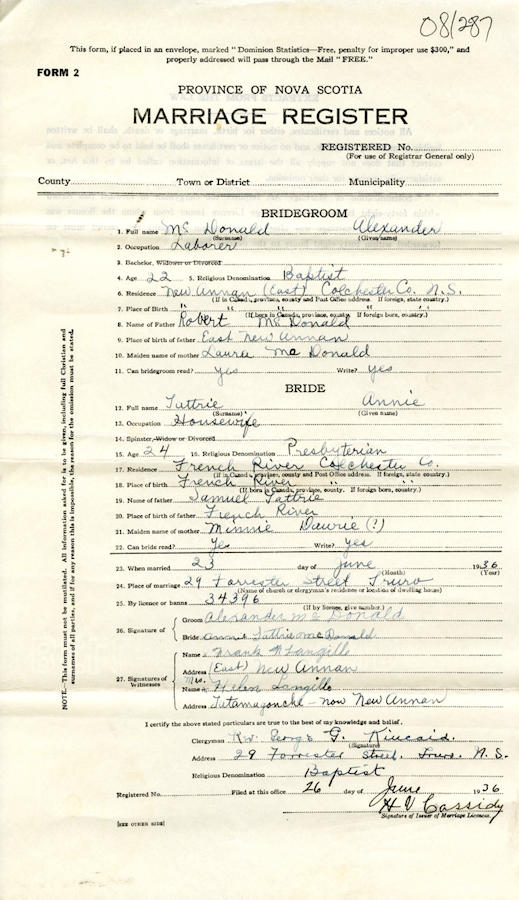 08/287
This form, if placed in an envelope, marked "Dominion Statistics—Free, penalty for improper use $300," and
properly addressed will pass through the Mail "FREE."
FORM 2
PROVINCE OF NOVA SCOTIA
MARRIAGE REGISTER
REGISTERED No.
(For use of Registrar General only)
County Town or District Municipality
BRIDEGROOM
1. Full name Mc Donald Alexander
(Surname) (Given name)
2. Occupation Laborer
3. Bachelor, Widower or Divorced
4. Age 22 5. Religious Denomination Baptist
6. Residence New Annan (East) Colchester Co. N.S.
(If in Canada, province, county and Post Office address. If foreign, state country.)
7. Place of Birth " " " " "
(If born in Canada, province, county. If foreign born, country.)
8. Name of Father Robert Mc Donald
9. Place of birth of father East New Annan
10. Maiden name of mother Laurie Mc Donald
11. Can bridegroom read? yes Write? yes
BRIDE
12. Full name Tattrie Annie
(Surname) (Given name)
13. Occupation Housewife
14. Spinster, Widow or Divorced
15. Age 24 16. Religious Denomination Presbyterian
17. Residence French River Colchester Co.
(If in Canada, province, county and Post Office address. If foreign, state country.)
18. Place of birth French River " "
(If born in Canada, province, county. If foreign born, country.)
19. Name of father Samuel Tattrie
20. Place of birth of father French River
21. Maiden name of mother Minnie (?)
22. Can bride read? Yes Write? Yes
23. When married 23 day of June 1936
(Month) (Year)
24. Place of marriage 29 Forrester Street Truro
(Name of church or clergyman's residence or location of dwelling house)
25. By licence or banns 34396
(If by licence, give number.)
26. Signature of Groom Alexander Mc Donald
Bride Annie Tattrie McDonald
27. Signatures of Witnesses
Name Frank Langille
Address (East) New Annan
Name Mrs. Helen Langille
Address Tatamagouche - now New Annan
I certify the above stated particulars are true to the best of my knowledge and belief.
Clergyman Rev. George G. Kincaid.
(Signature)
Address 29 Forrester Street, Truro. N.S.
Religious Denomination Baptist
Registered No. Filed at this office 26 day of June 1936
H V Cassidy
Signature of Issuer of Marriage Licences.
[SEE OTHER SIDE]
NOTE—This form must not be mutilated. All information asked for is to be given, including full Christian and
surnames of all parties, and if for any reason this is impossible, the reason for the omission must be stated.